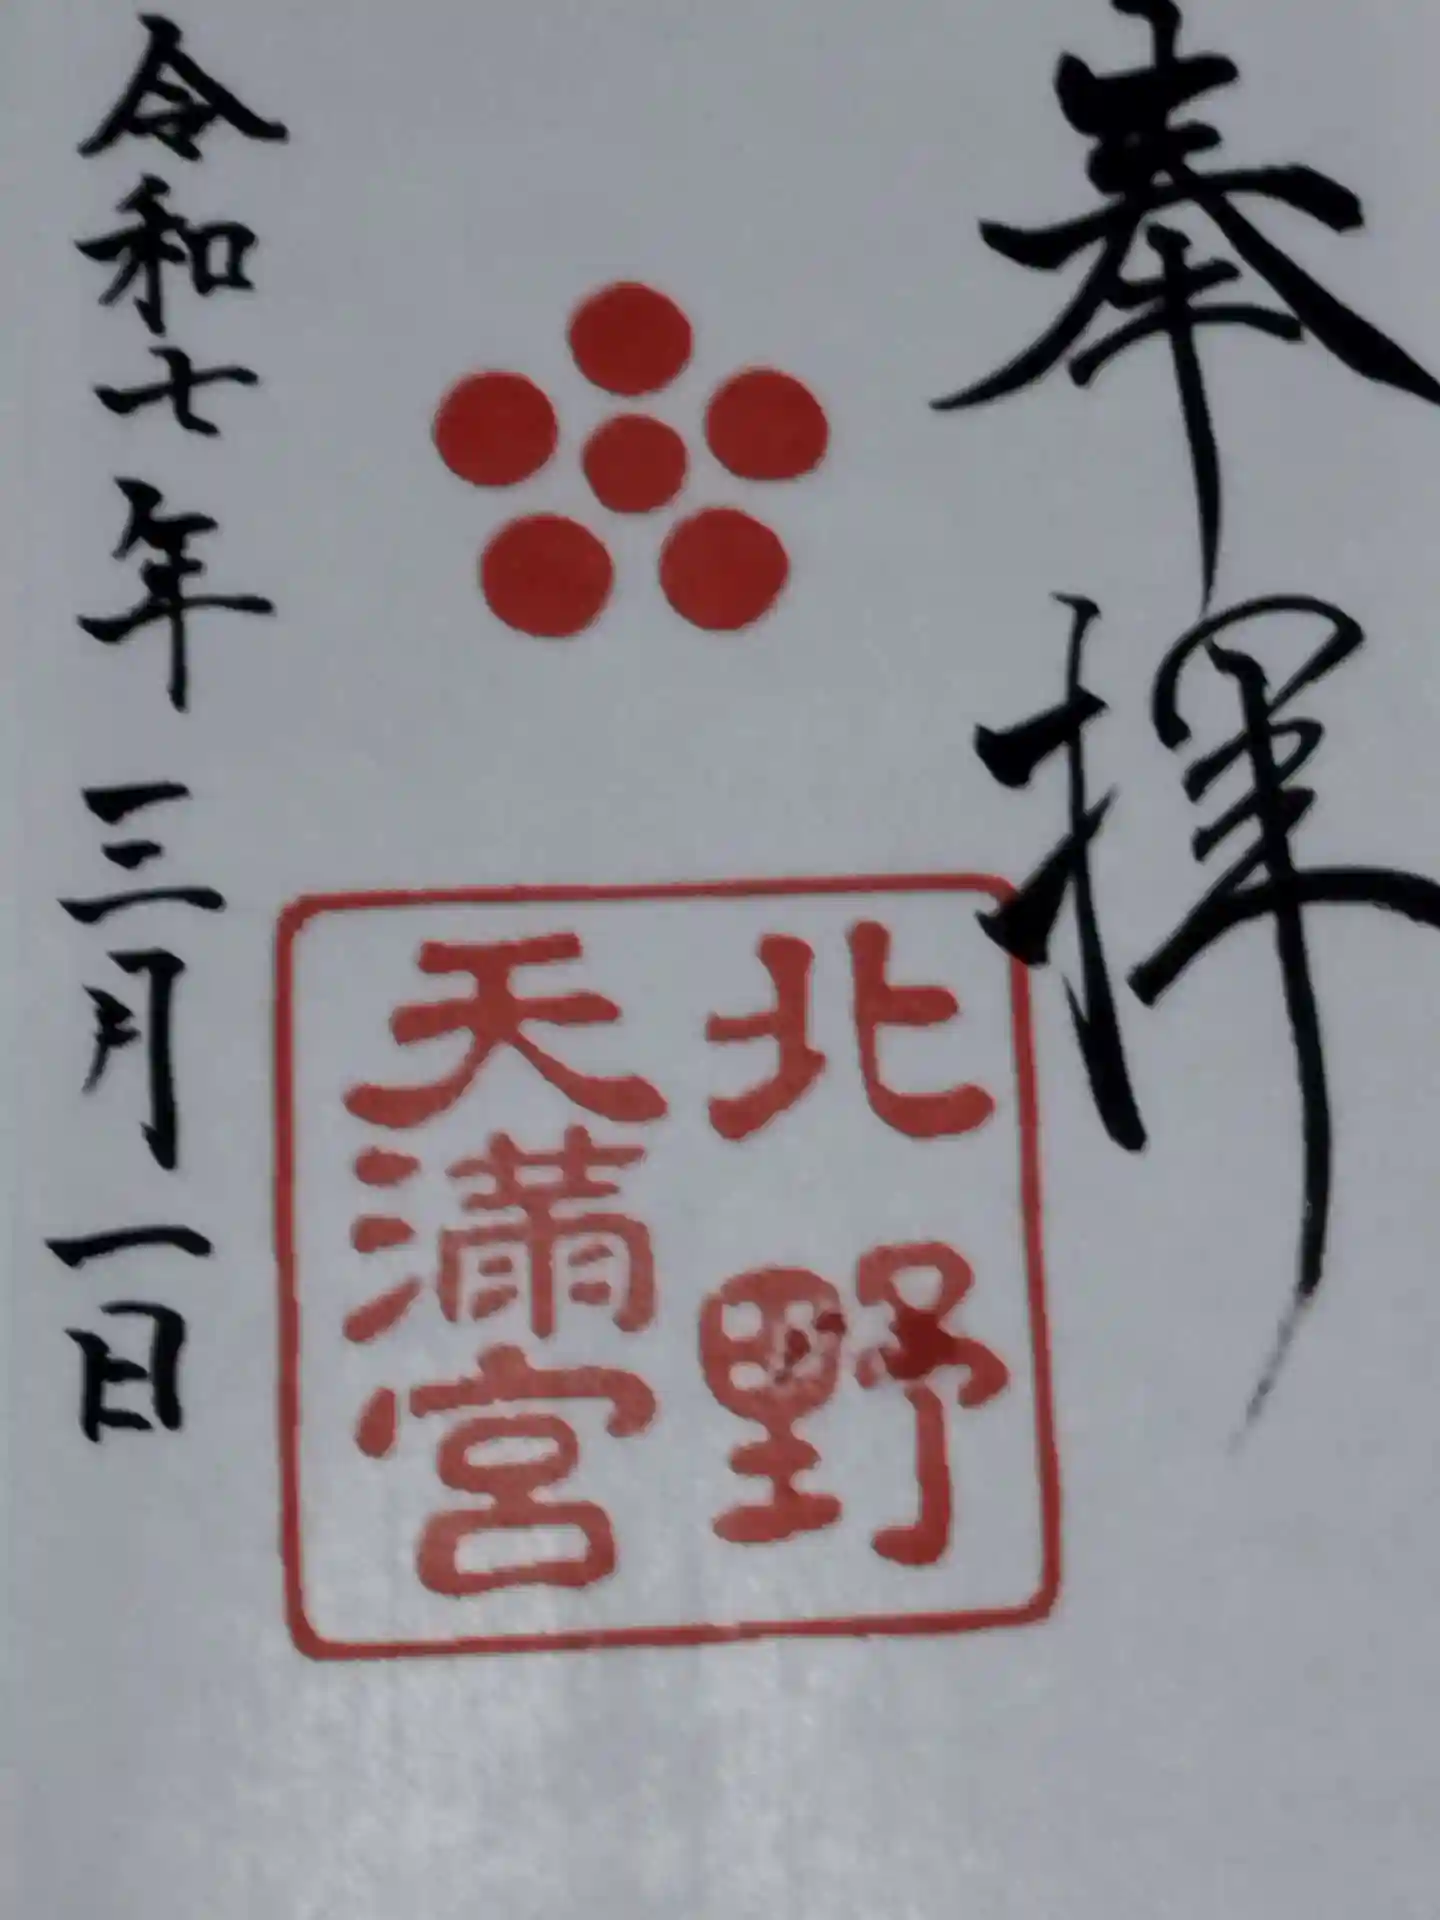 奉拝
北野
天満宮
令和七年三月一日